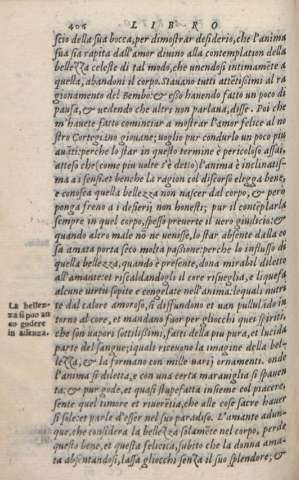 406 LIBRO
scio della sua bocca, per dimostrar desiderio, che l'anima
sua sia rapita dall'amor divino alla contemplation della
bellezza celeste di tal modo, che unendosi intimaméte a
quella, abandoni il corpo. Stavano tutti attétissimi al ra
gionamento del Bembo: & esso havendo fatto un poco di
pausa, & vedendo che altri non parlava, disse. Poi che
m'havete fatto cominciar a mostrar l'amor felice al no
stro Cortegiano giovane; voglio pur condurlo un poco piu
avãti: perche lo star in questo termine è pericoloso assai,
atteso che (come piu volte s'è detto) l'anima è inclinatis-
ma a i sensi: et benche la ragion col discorso elegga bene,
e conosca quella bellezza non nascer dal corpo, & però
ponga freno a i desierij non honesti; pur il contéplarla
sempre in quel corpo, spesso preverte il vero giudicio: &
quando altro male nõ ne venisse, lo star absente dalla co
sa amata porta seco molta passione: perche lo influsso di
quella bellezza, quando è presente, dona mirabil diletto
all'amante: et riscaldandogli il core risveglia, e liquefa
alcune virtù sopite e congelate nell'anima: le quali nutri-
te dal calore amoroso, si diffundono et van pullulãdo in
torno al core, et mandano fuor per gliocchi quei spiriti,
che son vapori sottilissimi, fatti della piu pura, et lucida
parte del sangue; i quali ricevono la imagine della bel-
lezza, & la formano con mille varij ornamenti. onde
l'anima si diletta, e con una certa maraviglia si spaven
ta: & pur gode, et quasi stupefatta insieme col piacere,
sente quel timore et riverétia, che alle cose sacre haver
si sole: et parle d'esser nel suo paradiso. L'amante adun-
que, che considera la bellezza solaméte nel corpo, perde
questo bene, et questa felicità, subito che la donna ama-
ta absentandosi, lassa gliocchi senza il suo splendore; &
La bellez-
za si puo an
co godere
in assenza.